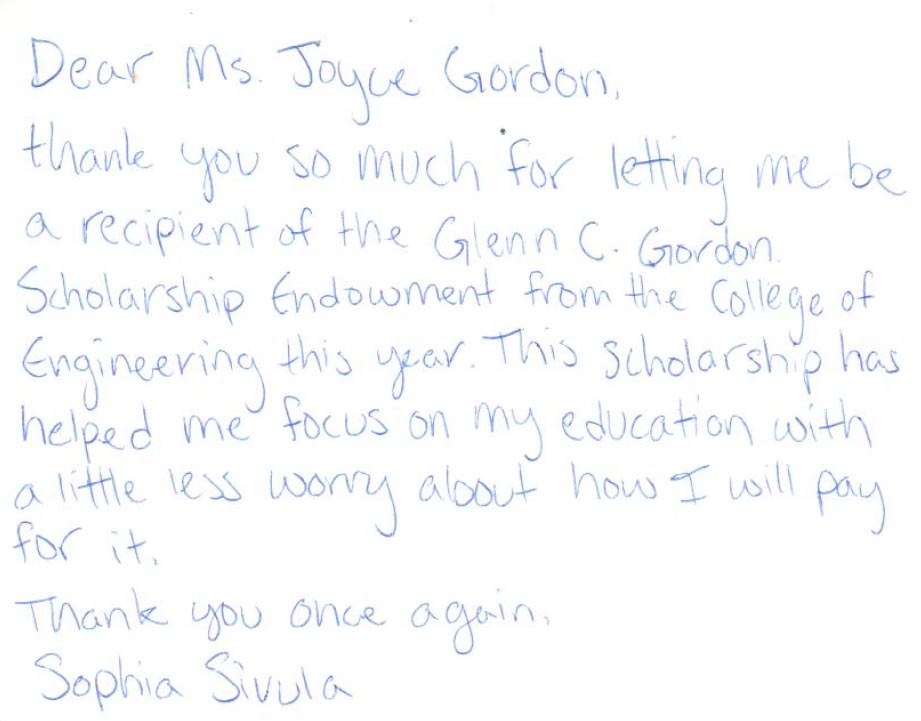 Dear Ms. Joyce Gordon,
thank you so much for letting me be
a recipient of the Glenn C. Gordon
Scholarship Endowment from the College of
Engineering this year. This scholarship has
helped me focus on my education with
a little less worry about how I will pay
for it.
Thank you once again,
Sophia Sivula